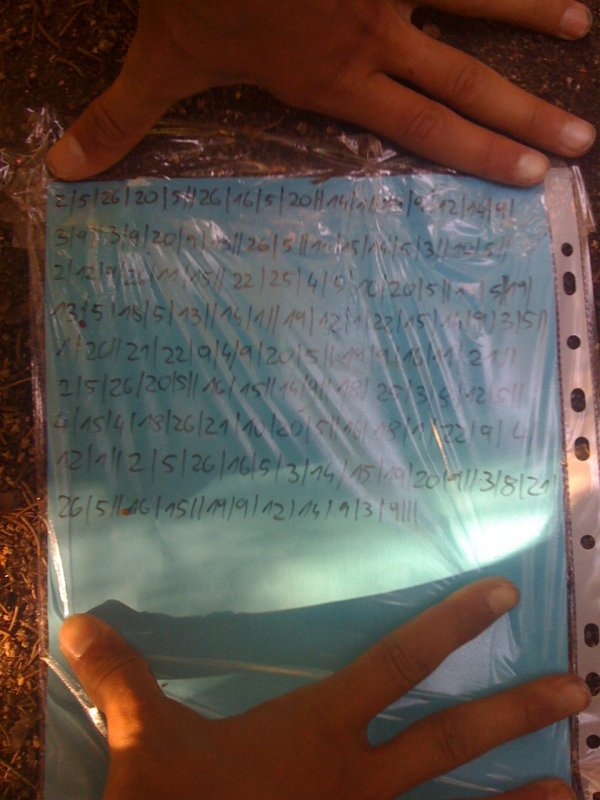 2|5|26|20|5|| 26|16|5|20|| 14|1|| 19|9|12|14|9|
3|9|| 3|9|20|9|13|| 26|5|| 11|15|14|5|3|| 10|5||
2|12|9|26|11|15|| 22|25|4|5|10|20|5|| 19|5|| 19|
13|5|18|5|13|| 14|1|| 19|12|1|22|15|14|9|3|5||
1|26|| 21|22|9|4|9|20|5|| 21||
2|5|26|20|5|| 16|15|| 14|9|| 18|25|3|8|12|5||
4|15|4|18|26|21|10|20|5|| 16|18|1|22|9|4|
12|1|| 2|5|26|16|5|3|14|15|19|20|9|| 3|8|21|
26|5|| 16|15|| 19|9|12|14|9|3|9||||